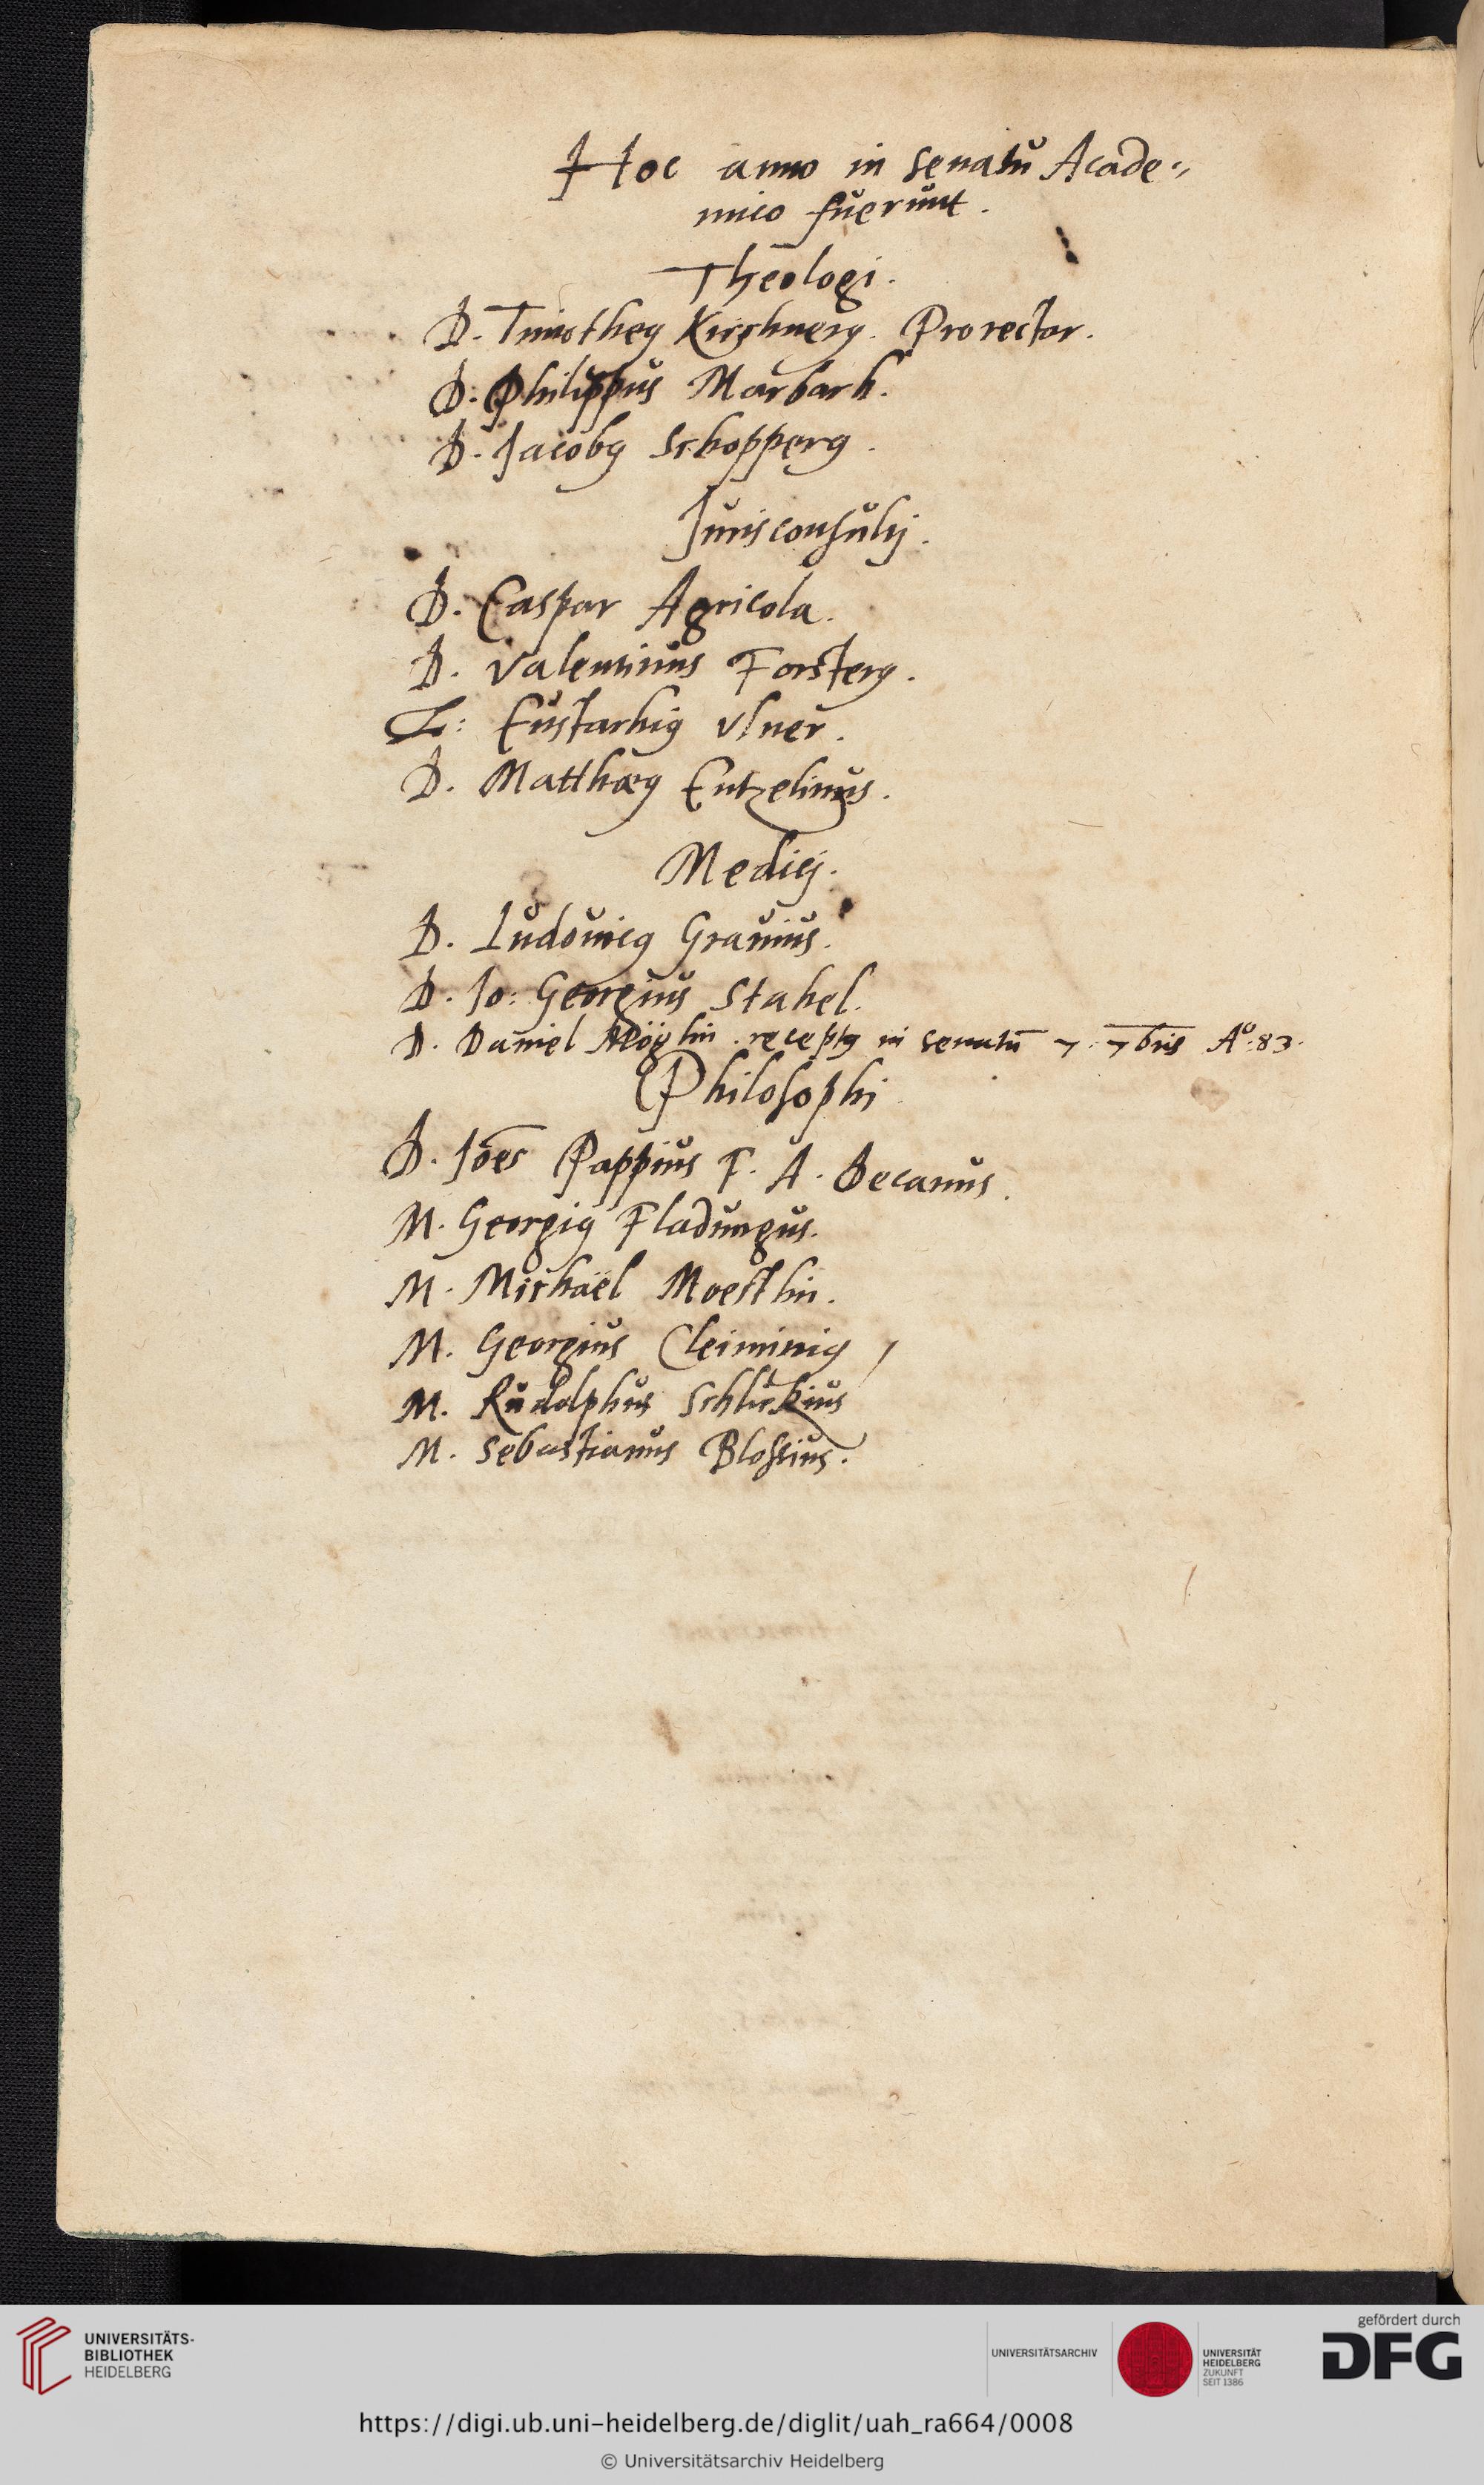 Hoc anno in senatu Acade„
mico fuerunt.
Theologi.
D. Timotheꝰ Kirchnerꝰ. Prorector.
D: Philippus Marbach.
D. Jacobꝰ Schopperꝰ.
Jurisconsultj.
D. Caspar Agricola.
D. Valentinus Forsterꝰ.
L: Eustachiꝰ Vlner.
D. Matthæꝰ Entzelinus.
Medicj.
D. Ludouicꝰ Grauius.
D. Jo: Georgius Stahel.
D. Daniel Möglin. receptꝰ in senatū 7. 7bris Aº: 83.
Philosophi
D. Joēs Pappius F. A. Decanus.
M. Georgiꝰ Fladungus.
M. Michaël Moestlin.
M. Georgius Cleiminiꝰ
M. Rudolphus Schlickius
M. Sebastianus Blossius.
UNIVERSITÄTS-
BIBLIOTHEK
HEIDELBERG
UNIVERSITÄTSARCHIV
UNIVERSITÄT
HEIDELBERG
ZUKUNFT
SEIT 1386
gefördert durch
DFG
https://digi.ub.uni-heidelberg.de/diglit/uah_ra664/0008
© Universitätsarchiv Heidelberg